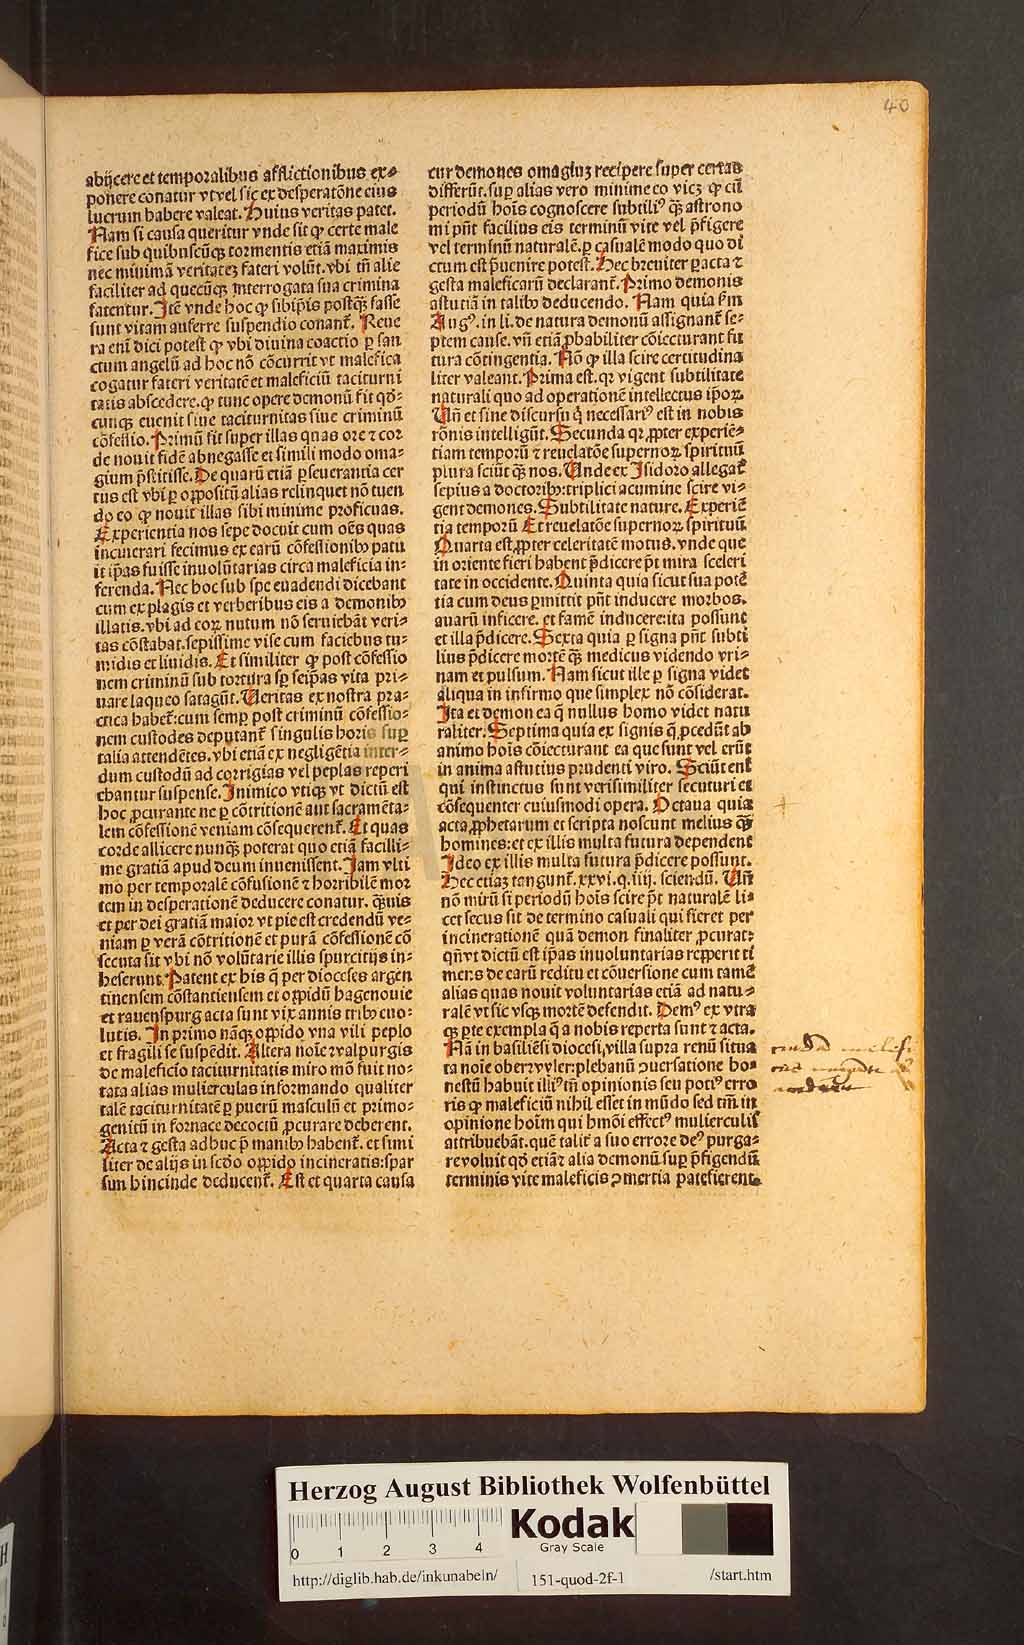 40
abijcere et temporalibus afflictionibus ex⸗
ponere conatur vt vel sic ex desperatõne eius
lucrum habere valeat. Huius veritas patet.
Nam si causa queritur vnde sit ꝙ certe male
fice sub quibuscũqꝫ tormentis etiã maximis
nec minimã veritateꝫ fateri volũt. vbi tñ alie
faciliter ad quecũqꝫ interrogata sua crimina
fatentur. Itẽ vnde hoc ꝙ sibip̄is postqꝫ fasse
sunt vitam auferre suspendio conant̃. Reue
ra eni dici potest ꝙ vbi diuina coactio ꝑ san
ctum angelũ ad hoc nõ cõcurrit vt malefica
cogatur fateri veritatẽ et maleficiũ taciturni
tatis abscedere. ꝙ tunc opere demonũ fit qđ⸗
cunqꝫ euenit siue taciturnitas siue criminũ
cõfessio. Primũ fit super illas quas ore ⁊ cor
de nouit fidẽ abnegasse et simili modo oma⸗
gium p̄stitisse. De quarũ etiã ꝑseuerantia cer
tus est vbi ꝑ oppositũ alias relinquet nõ tuen
do eo ꝙ nouit illas sibi minime proficuas.
Experientia nos sepe docuit cum oẽs quas
incinerari fecimus ex earũ cõfessionibꝰ patu
it ip̄as fuisse inuolũtarias circa maleficia in⸗
ferenda. Nec hoc sub spe euadendi dicebant
cum ex plagis et verberibus eis a demonibꝰ
illatis. vbi ad eoꝝ nutum nõ seruiebãt veri⸗
tas cõstabat. sepissime vise cum faciebus tu⸗
midis et liuidis. Et similiter ꝙ post cõfessio
nem criminũ sub tortura sp̄ seip̄as vita pri⸗
uare laqueo satagũt. Veritas ex nostra pra⸗
ctica habet̃: cum semꝑ post criminũ cõfessio⸗
nem custodes deputant̃ singulis horis suꝑ
talia attendẽtes. vbi etiã ex negligẽtia inter⸗
dum custodũ ad corrigias vel peplas reperi
ebantur suspense. Inimico vtiqꝫ vt dictũ est
hoc ꝓcurante ne ꝑ cõtritionẽ aut sacramẽta⸗
lem cõfessionẽ veniam cõsequerent̃. Et quas
corde allicere nunqꝫ poterat quo etiã facilli⸗
me gratiã apud deum inuenissent. Iam vlti
mo per temporalẽ cõfusionẽ ⁊ horribilẽ mor
tem in desperationẽ deducere conatur. qꝫuis
et per dei gratiã maior vt pie est credendũ ve⸗
niam ꝑ verã cõtritionẽ et purã cõfessionẽ cõ
secuta sit vbi nõ volũtarie illis spurcitijs in⸗
heserunt. Patent ex his q̃ per dioceses argen
tinensem cõstantiensem et oppidũ hagenouie
et rauenspurg acta sunt vix annis tribꝰ euo⸗
lutis. In primo nãqꝫ oppido vna vili peplo
et fragili se suspẽdit. Altera noĩe ⁊ valpurgis
de maleficio taciturnitatis miro mõ fuit no⸗
tata alias mulierculas informando qualiter
talẽ taciturnitatẽ ꝑ puerũ masculũ et primo⸗
genitũ in fornace decociũ ꝓcurare deberent.
Acta ⁊ gesta adhuc p̄ manibꝰ habent̃. et simi
liter de alijs in scđo oppido incineratis: spar
sun hincinde deducent̃. Est et quarta causa
cur demones omagiuꝫ recipere super certas
differũt. suꝑ alias vero minime eo vicꝫ ꝙ cũ
periodũ hoĩs cognoscere subtiliꝰ qꝫ astrono
mi pñt facilius eis terminũ vite vel p̄figere
vel terminũ naturalẽ. ꝑ casualẽ modo quo di
ctum est p̄uenire potest. Hec breuiter ꝑ acta ⁊
gesta maleficarũ declarant̃. Primo demonis
astutiã in talibꝰ deducendo. Nam quia ẜm
Augꝰ. in li. de natura demonũ assignant̃ se⸗
ptem cause. vñ etiã ꝓbabiliter cõiecturant fu
tura cõtingentia. Nõ ꝙ illa scire certitudina
liter valeant. Prima est. qꝛ vigent subtilitate
naturali quo ad operationẽ intellectus ip̄oꝝ.
Vñ et sine discursu q̇ necessariꝰ est in nobis
rõnis intelligũt. Secunda qꝛ ꝓpter experiẽ⸗
tiam temporũ ⁊ reuelatõe supernoꝝ spirituũ
plura sciũt qꝫ nos. Vnde ex Isidoro allegat̃
sepius a doctoribꝰ: triplici acumine scire vi⸗
gent demones. Subtilitate nature. Experiẽ
tia temporũ Et reuelatõe supernoꝝ spirituũ
Quarta est ꝓpter celeritatẽ motus. vnde que
in oriente fieri habent p̄dicere p̄t mira sceleri
tate in occidente. Quinta quia sicut sua potẽ
tia cum deus ꝑmittit pñt inducere morbos.
auarũ inficere. et famẽ inducere: ita possunt
et illa p̄dicere. Sexta quia ꝑ signa pñt subti
lius p̄dicere mortẽ qꝫ medicus videndo vri⸗
nam et pulsum. Nam sicut ille ꝑ signa videt
aliqua in infirmo que simplex nõ cõsiderat.
Ita et demon ea q̃ nullus homo videt natu
raliter. Septima quia ex signis q̃ ꝓcedũt ab
animo hoĩs cõiecturant ea que sunt vel erũt
in anima astutius prudenti viro. Sciũt eni
qui instinctus sunt verisimiliter secuturi et
cõsequenter cuiusmodi opera. Octaua quia
acta ꝓphetarum et scripta noscunt melius qꝫ
homines: et ex illis multa futura dependent
Ideo ex illis multa futura p̄dicere possunt.
Hec etiaꝫ tangunt̃. xxvi. q. iiij. sciendũ. Vñ
nõ mirũ si periodũ hoĩs scire p̄t naturalẽ li⸗
cet secus sit de termino casuali qui fieret per
incinerationẽ quã demon finaliter ꝓcurat:
qñ vt dictũ est ip̄as inuoluntarias repperit ti
mens de earũ reditu et cõuersione cum tamẽ
alias quas nouit voluntarias etiã ad natu⸗
ralẽ vt sic vsqꝫ mortẽ defendit. Demꝰ ex vtra
qꝫ pte exempla q̃ a nobis reperta sunt ⁊ acta.
Nã in basiliẽsi diocesi, villa supra renũ situa
ta noĩe oberꝛvyler: plebanũ ꝯuersatione ho⸗
nestũ habuit illiꝰ tñ opinionis seu potiꝰ erro
ris ꝙ maleficiũ nihil esset in mũdo sed tm̃ in
opinione hoĩm qui hm̃oi effectꝰ mulierculis
attribuebãt. quẽ talit̃ a suo errore deꝰ purga⸗
re voluit qđ etiã ⁊ alia demonũ suꝑ p̄figendũ
terminis vite maleficis ꝯmertia patefierent.
Herzog August Bibliothek Wolfenbüttel
0 1 2 3 4
Kodak
Gray Scale
http://diglib.hab.de/inkunabeln/ 151-quod-2f-1 /start.htm